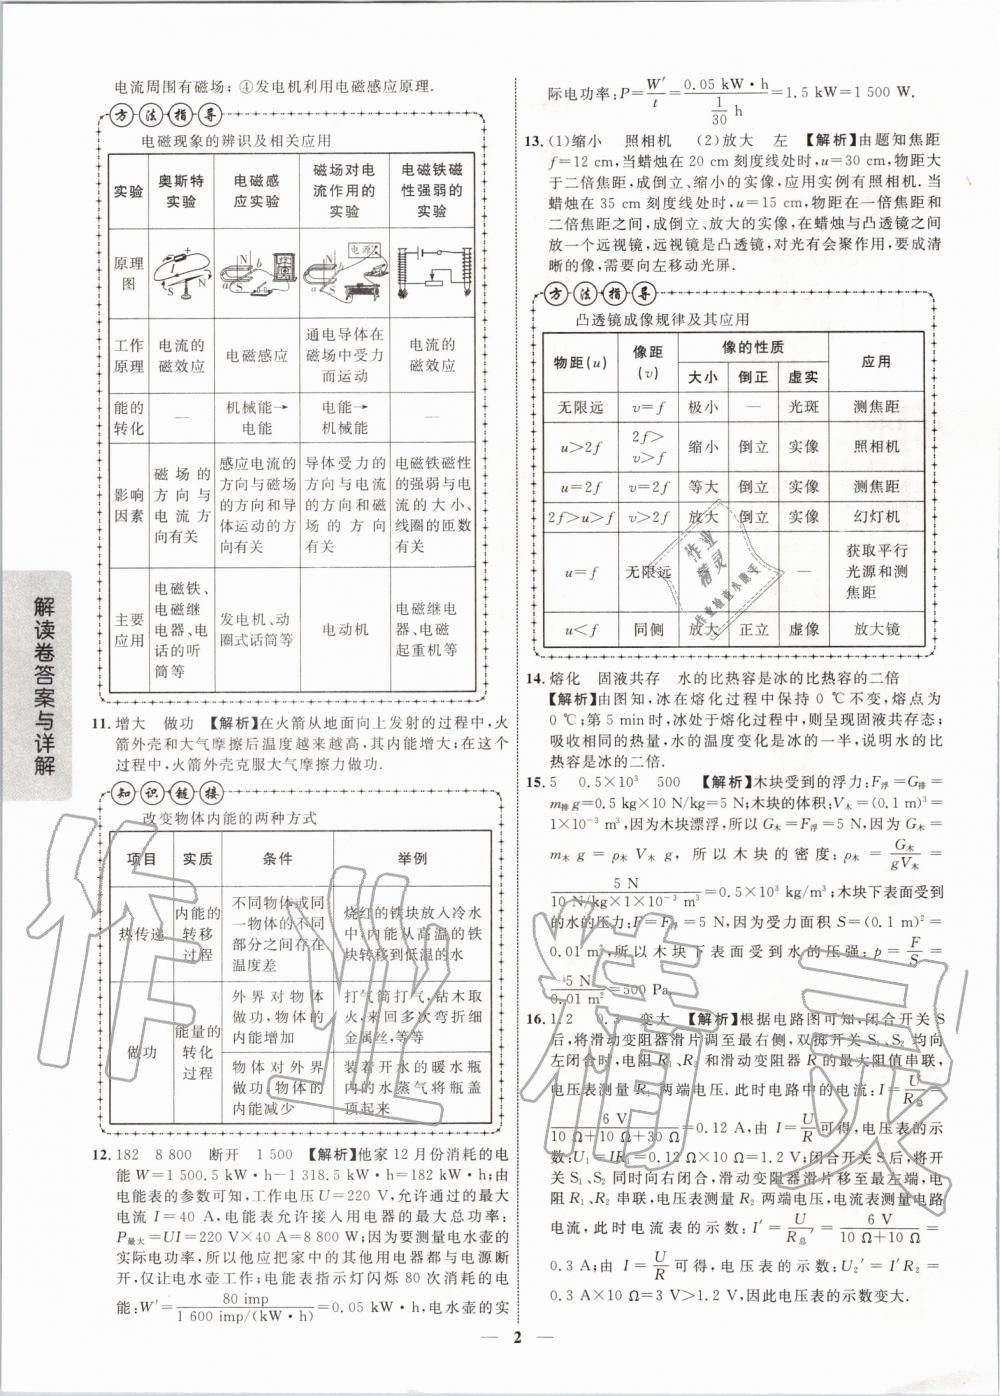 电流周围有磁场；④发电机利用电磁感应原理.
方法指导
电磁现象的辨识及相关应用
实验 奥斯特实验 电磁感应实验 磁场对电流作用的实验 电磁铁磁性强弱的实验
原理图
工作原理 电流的磁效应 电磁感应 通电导体在磁场中受力而运动 电流的磁效应
能的转化 — 机械能→电能 电能→机械能 —
影响因素 磁场的方向与电流方向有关 感应电流的方向与磁场的方向和导体运动的方向有关 导体受力的方向与电流的方向和磁场的方向有关 电磁铁磁性的强弱与电流的大小、线圈的匝数有关
主要应用 电磁铁、电磁继电器、电话的听筒等 发电机、动圈式话筒等 电动机 电磁继电器、电磁起重机等
11.增大 做功 【解析】在火箭从地面向上发射的过程中,火
箭外壳和大气摩擦后温度越来越高,其内能增大;在这个
过程中,火箭外壳克服大气摩擦力做功.
知识链接
改变物体内能的两种方式
项目 实质 条件 举例
热传递 内能的转移过程 不同物体或同一物体的不同部分之间存在温度差 烧红的铁块放入冷水中,内能从高温的铁块转移到低温的水
做功 能量的转化过程 外界对物体做功,物体的内能增加 打气筒打气,钻木取火,来回多次弯折细金属丝,等等
物体对外界做功,物体的内能减少 装着开水的暖水瓶内的水蒸气将瓶盖顶起来
12.182 8 800 断开 1 500 【解析】他家12月份消耗的电
能W=1 500.5 kW·h-1 318.5 kW·h=182 kW·h;由
电能表的参数可知,工作电压U=220 V,允许通过的最大
电流I=40 A,电能表允许接入用电器的最大总功率:
P最大=UI=220 V×40 A=8 800 W;因为要测量电水壶的
实际电功率,所以他应把家中的其他用电器都与电源断
开,仅让电水壶工作;电能表指示灯闪烁80次消耗的电
能:W′=80 imp/1 600 imp/(kW·h)=0.05 kW·h,电水壶的实
际电功率:P=W′/t=0.05 kW·h/(1/30 h)=1.5 kW=1 500 W.
13.(1)缩小 照相机 (2)放大 左 【解析】由题知焦距
f=12 cm,当蜡烛在20 cm刻度线处时,u=30 cm,物距大
于二倍焦距,成倒立、缩小的实像,应用实例有照相机.当
蜡烛在35 cm刻度线处时,u=15 cm,物距在一倍焦距和
二倍焦距之间,成倒立、放大的实像,在蜡烛与凸透镜之间
放一个远视镜,远视镜是凸透镜,对光有会聚作用,要成清
晰的像,需要向左移动光屏.
方法指导
凸透镜成像规律及其应用
物距(u) 像距(v) 像的性质 应用
大小 倒正 虚实
无限远 v=f 极小 — 光斑 测焦距
u>2f 2f>v>f 缩小 倒立 实像 照相机
u=2f v=2f 等大 倒立 实像 测焦距
2f>u>f v>2f 放大 倒立 实像 幻灯机
u=f 无限远 — 获取平行光源和测焦距
u<f 同侧 放大 正立 虚像 放大镜
14.熔化 固液共存 水的比热容是冰的比热容的二倍
【解析】由图知,冰在熔化过程中保持0 ℃不变,熔点为
0 ℃;第5 min时,冰处于熔化过程中,则呈现固液共存态;
吸收相同的热量,水的温度变化是冰的一半,说明水的比
热容是冰的二倍.
15.5 0.5×10³ 500 【解析】木块受到的浮力:F浮=G排=
m排g=0.5 kg×10 N/kg=5 N;木块的体积:V木=(0.1 m)³=
1×10⁻³ m³,因为木块漂浮,所以G木=F浮=5 N,因为G木=
m木g=ρ木V木g,所以木块的密度:ρ木=G木/gV木=
5 N/(10 N/kg×1×10⁻³ m³)=0.5×10³ kg/m³;木块下表面受到
的水的压力:F=F浮=5 N,因为受力面积S=(0.1 m)²=
0.01 m²,所以木块下表面受到水的压强:p=F/S=
5 N/0.01 m²=500 Pa.
16.1.2 0.3 变大 【解析】根据电路图可知,闭合开关S
后,将滑动变阻器滑片调至最右侧,双掷开关S₁、S₂均向
左闭合时,电阻R₁、R₂和滑动变阻器R的最大阻值串联,
电压表测量R₁两端电压.此时电路中的电流:I=U/R总=
6 V/(10 Ω+10 Ω+30 Ω)=0.12 A,由I=U/R可得,电压表的示
数:U₁=IR₁=0.12 A×10 Ω=1.2 V;闭合开关S后,将开
关S₁、S₂同时向右闭合,滑动变阻器滑片移至最左端,电
阻R₁、R₂串联,电压表测量R₂两端电压,电流表测量电路
电流,此时电流表的示数:I′=U/R总′=6 V/(10 Ω+10 Ω)=
0.3 A;由I=U/R可得,电压表的示数:U₂′=I′R₂=
0.3 A×10 Ω=3 V>1.2 V,因此电压表的示数变大.
解读卷答案与详解
— 2 —
作业精灵
作业精灵
作业检查小助手